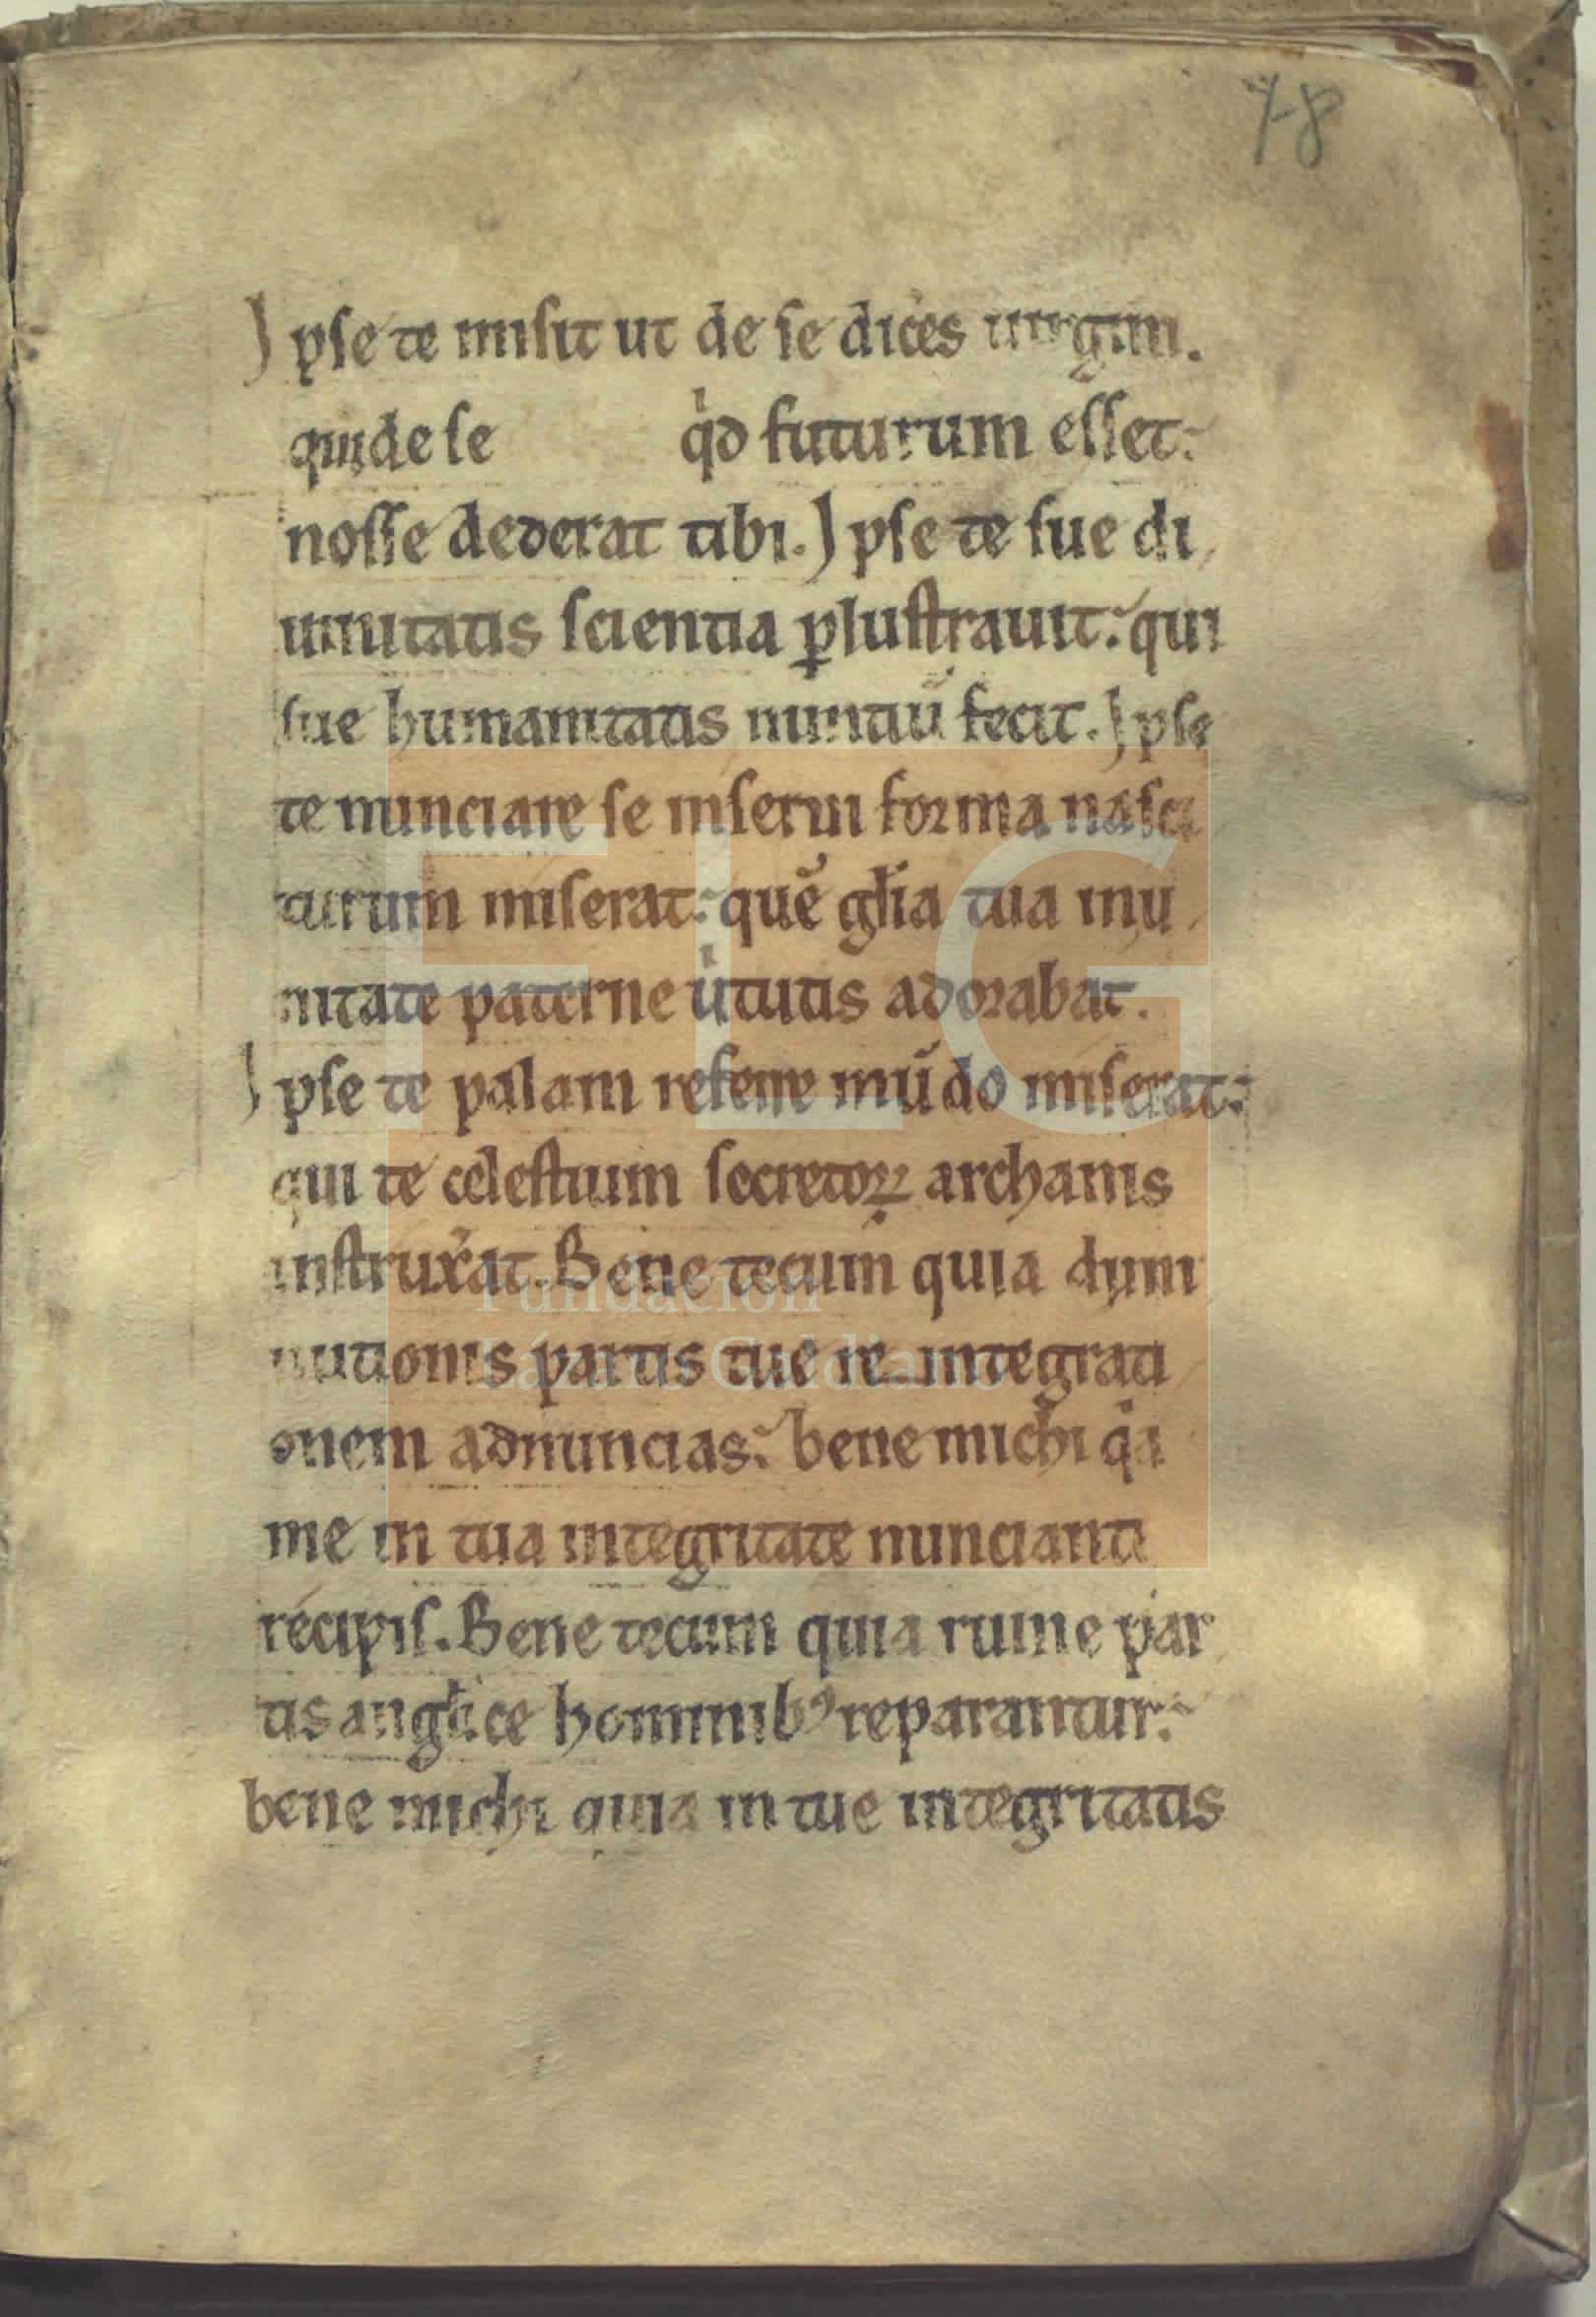 78
Ipse te misit ut de se dices uirgini.
qui de se qd futurum esset.
nosse dederat tibi. Ipse te sue di
uinitatis scientia plustrauit. qui
sue humanitatis nuntiū fecit. Ipse
te nunciare se in serui forma nasci
turum miserat. quē glia tua in u
nitate paterne ututis adorabat.
Ipse te palam referre mūdo miserat.
qui te celestium secretoꝝ archanis
instruxat. Bene tecum quia dimi
nutionis partis tue re integrati
onem adnuncias. bene michi qa
me in tua integritate nuncianti
recipis. Bene tecum quia ruine par
tis anglice hominibꝰ reparantur.
bene michi quia in tue integritatis
FLG
Fundación
Lázaro Galdiano